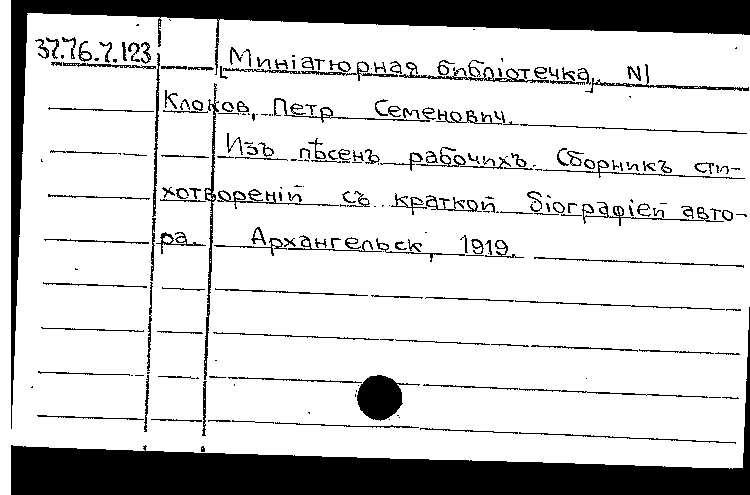 37.76.7.123 [Миніатюрная библіотечка], N1
Клоков, Петр Семенович.
Изъ пѣсенъ рабочихъ. Сборникъ сти-
хотвореній съ краткой біографіей авто-
ра. Архангельск, 1919.